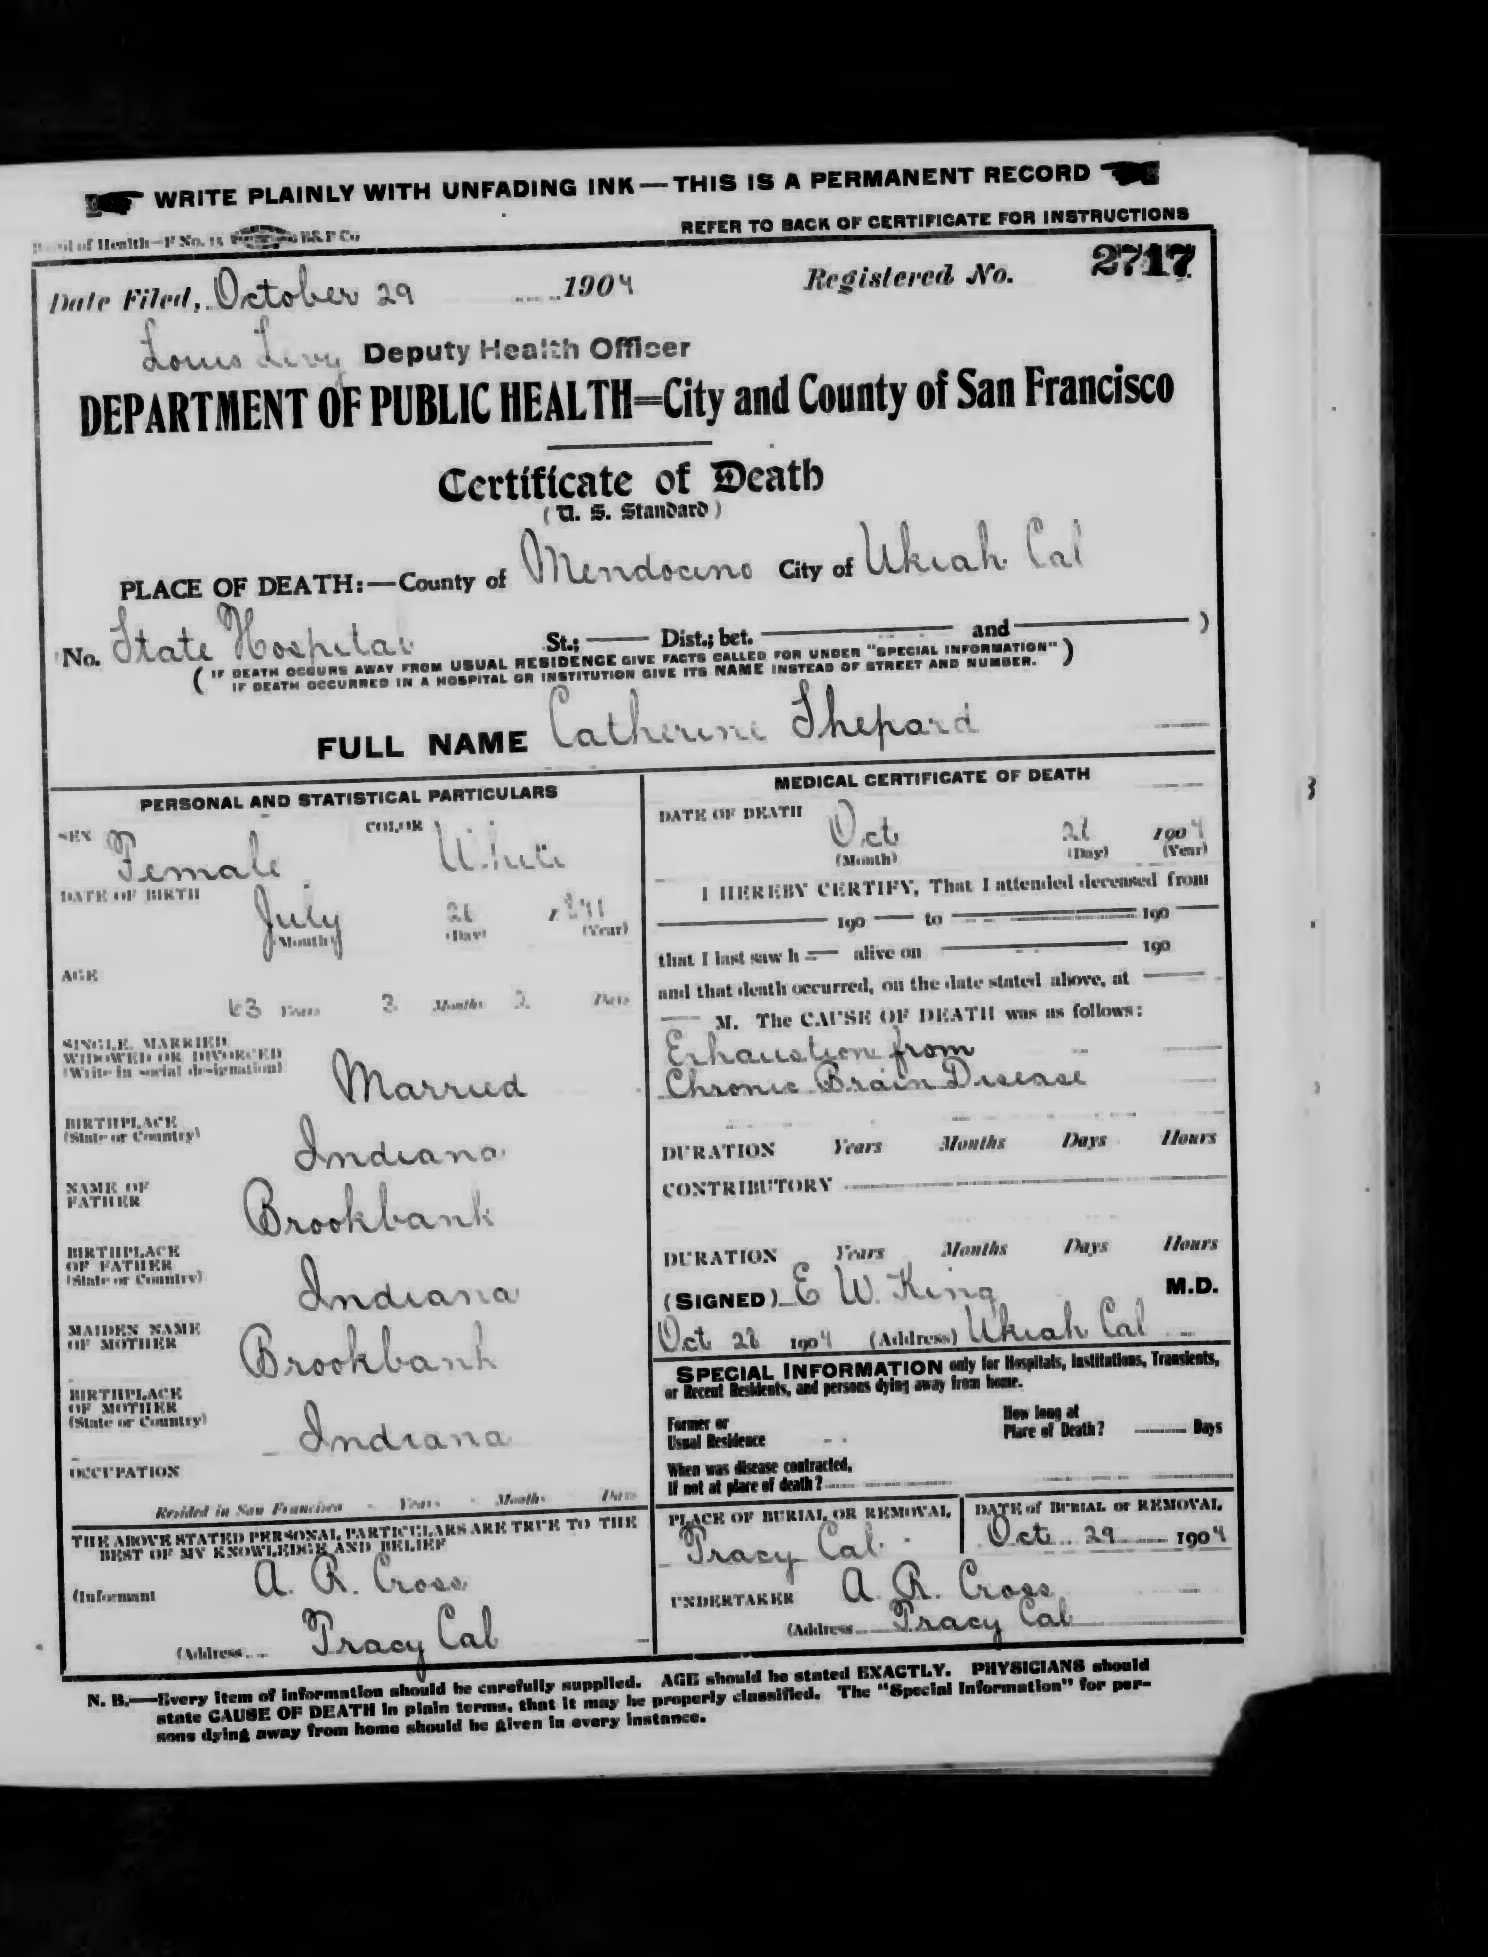 WRITE PLAINLY WITH UNFADING INK—THIS IS A PERMANENT RECORD
REFER TO BACK OF CERTIFICATE FOR INSTRUCTIONS
of Health—F No. 15 B&P Co
Date Filed, October 29 1904 Registered No. 2717
Louis Levy Deputy Health Officer
DEPARTMENT OF PUBLIC HEALTH=City and County of San Francisco
Certificate of Death
(U. S. Standard)
PLACE OF DEATH:—County of Mendocino City of Ukiah Cal
No. State Hospital St.; Dist.; bet. and )
( IF DEATH OCCURS AWAY FROM USUAL RESIDENCE GIVE FACTS CALLED FOR UNDER "SPECIAL INFORMATION" )
IF DEATH OCCURRED IN A HOSPITAL OR INSTITUTION GIVE ITS NAME INSTEAD OF STREET AND NUMBER.
FULL NAME Catherine Shepard
PERSONAL AND STATISTICAL PARTICULARS
SEX Female COLOR White
DATE OF BIRTH July
(Month) (Day) (Year)
AGE
63 Years 3 Months Days
SINGLE, MARRIED,
WIDOWED OR DIVORCED
(Write in social designation) Married
BIRTHPLACE
(State or Country) Indiana
NAME OF
FATHER Brookbank
BIRTHPLACE
OF FATHER
(State or Country) Indiana
MAIDEN NAME
OF MOTHER Brookbank
BIRTHPLACE
OF MOTHER
(State or Country) Indiana
OCCUPATION
Resided in San Francisco Years Months Days
THE ABOVE STATED PERSONAL PARTICULARS ARE TRUE TO THE
BEST OF MY KNOWLEDGE AND BELIEF
(Informant A. R. Cross
(Address Tracy Cal
MEDICAL CERTIFICATE OF DEATH
DATE OF DEATH
Oct 1904
(Month) (Day) (Year)
I HEREBY CERTIFY, That I attended deceased from
190 to 190
that I last saw h alive on 190
and that death occurred, on the date stated above, at
M. The CAUSE OF DEATH was as follows:
Exhaustion from
Chronic Brain Disease
DURATION Years Months Days Hours
CONTRIBUTORY
DURATION Years Months Days Hours
(SIGNED) E W. King M.D.
Oct 28 1904 (Address) Ukiah Cal
SPECIAL INFORMATION only for Hospitals, Institutions, Transients,
or Recent Residents, and persons dying away from home.
Former or
Usual Residence
How long at
Place of Death? Days
When was disease contracted,
If not at place of death?
PLACE OF BURIAL OR REMOVAL
Tracy Cal.
DATE of BURIAL or REMOVAL
Oct 29 1904
UNDERTAKER A. R. Cross
(Address Tracy Cal
N. B.—Every item of information should be carefully supplied. AGE should be stated EXACTLY. PHYSICIANS should
state CAUSE OF DEATH in plain terms, that it may be properly classified. The "Special Information" for per-
sons dying away from home should be given in every instance.